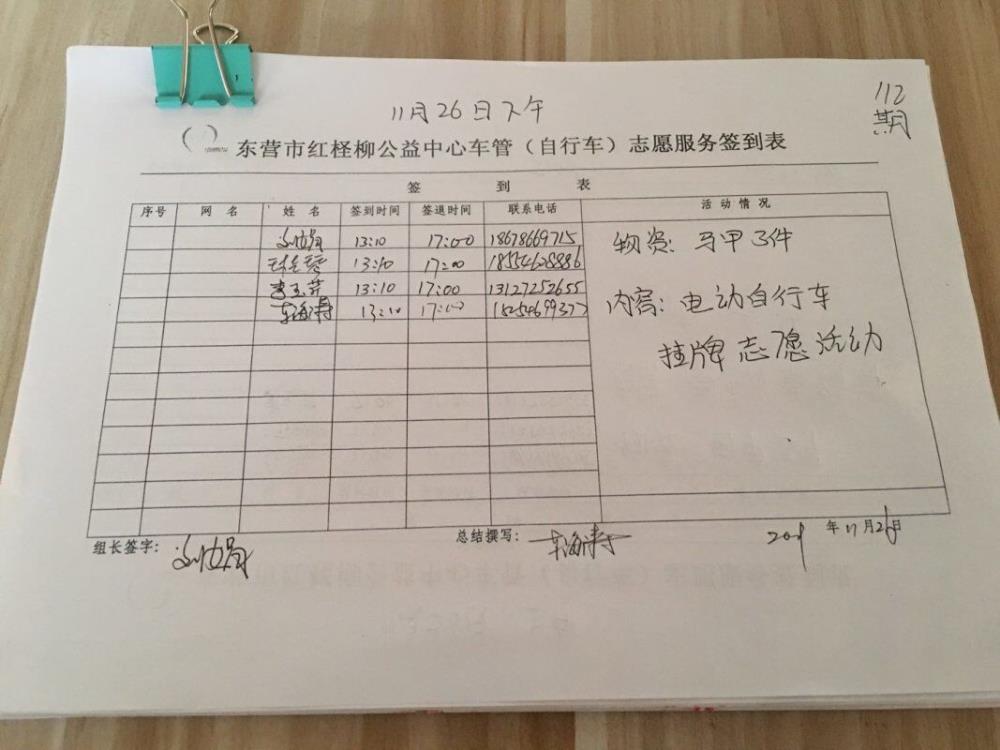 11月26日下午
112
期
东营市红柽柳公益中心车管（自行车）志愿服务签到表
签 到 表
序号 网 名 姓 名 签到时间 签退时间 联系电话 活动情况
13:10 17:00 18678669715
13:10 17:00 18554628886
李玉芹 13:10 17:00 13127252655
车海涛 13:10 17:00 18254699377
物资: 马甲3件
内容: 电动自行车
挂牌志愿活动
组长签字: 总结撰写: 车海涛 年11月26日